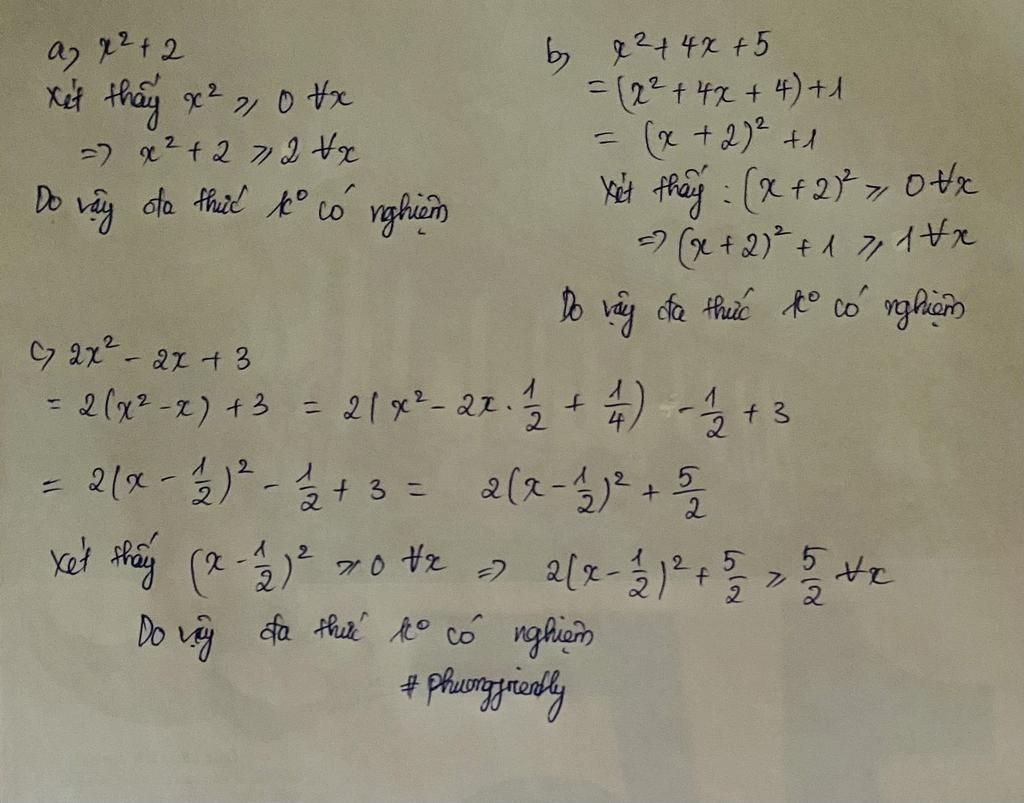 a, x² + 2
Xét thấy x² ≥ 0 ∀x
=> x² + 2 ≥ 2 ∀x
Do vậy đa thức k° có nghiệm
b, x² + 4x + 5
= (x² + 4x + 4) + 1
= (x + 2)² + 1
Xét thấy : (x + 2)² ≥ 0 ∀x
=> (x + 2)² + 1 ≥ 1 ∀x
Do vậy đa thức k° có nghiệm
c, 2x² - 2x + 3
= 2(x² - x) + 3 = 2(x² - 2x . 1/2 + 1/4) - 1/2 + 3
= 2(x - 1/2)² - 1/2 + 3 = 2(x - 1/2)² + 5/2
Xét thấy (x - 1/2)² ≥ 0 ∀x => 2(x - 1/2)² + 5/2 ≥ 5/2 ∀x
Do vậy đa thức k° có nghiệm
# phuongfriendly